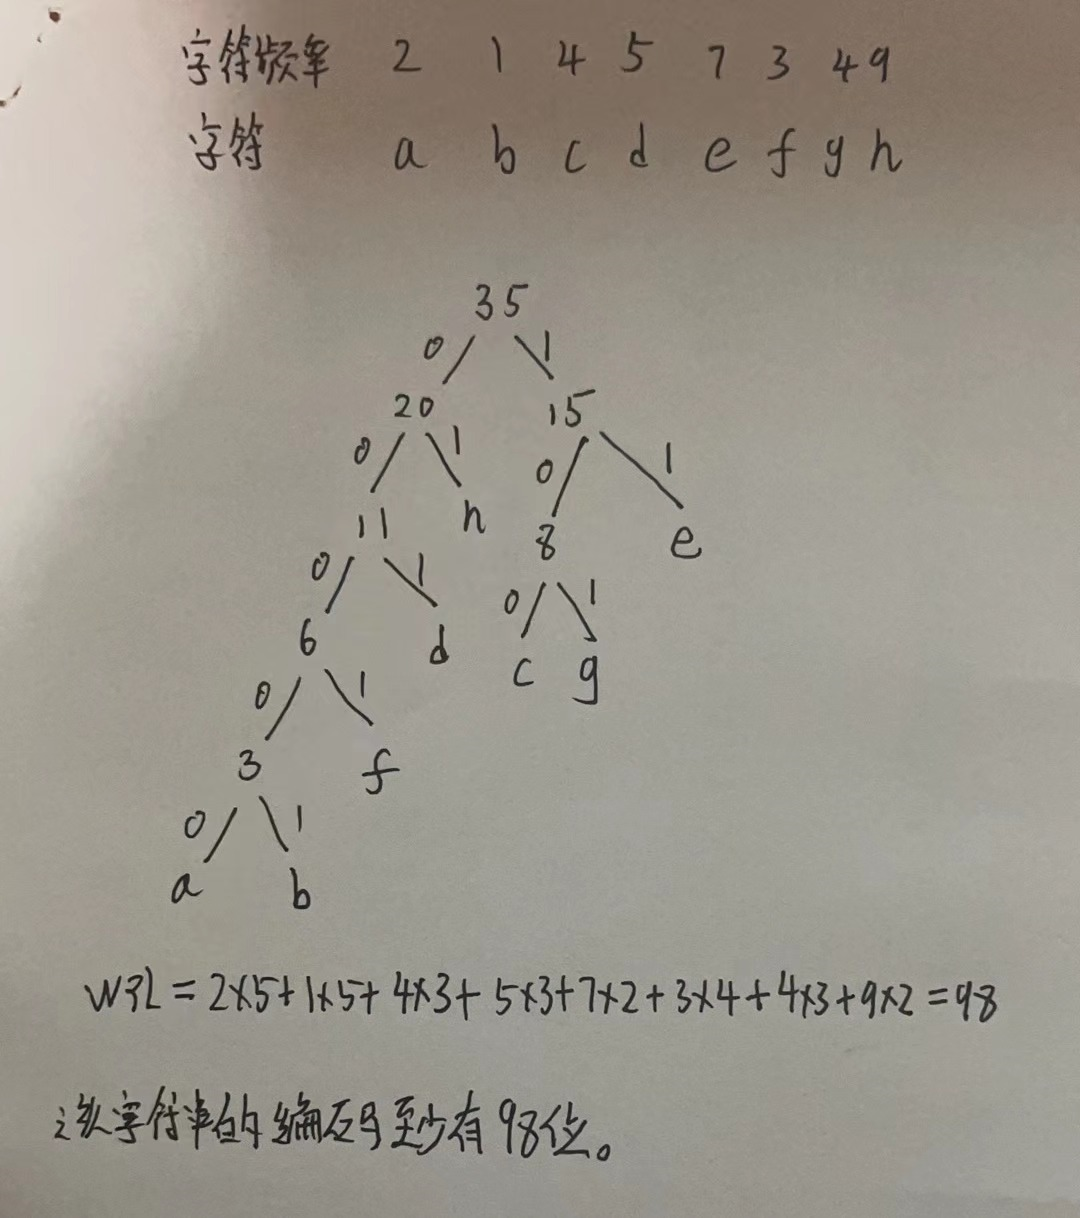 字符频率 2 1 4 5 7 3 4 9
字符 a b c d e f g h
35
0 1
20 15
0 1 0 1
11 h 8 e
0 1 0 1
6 d c g
0 1
3 f
0 1
a b
WPL = 2×5+1×5+4×3+5×3+7×2+3×4+4×3+9×2=98
该字符串的编码至少有98位。